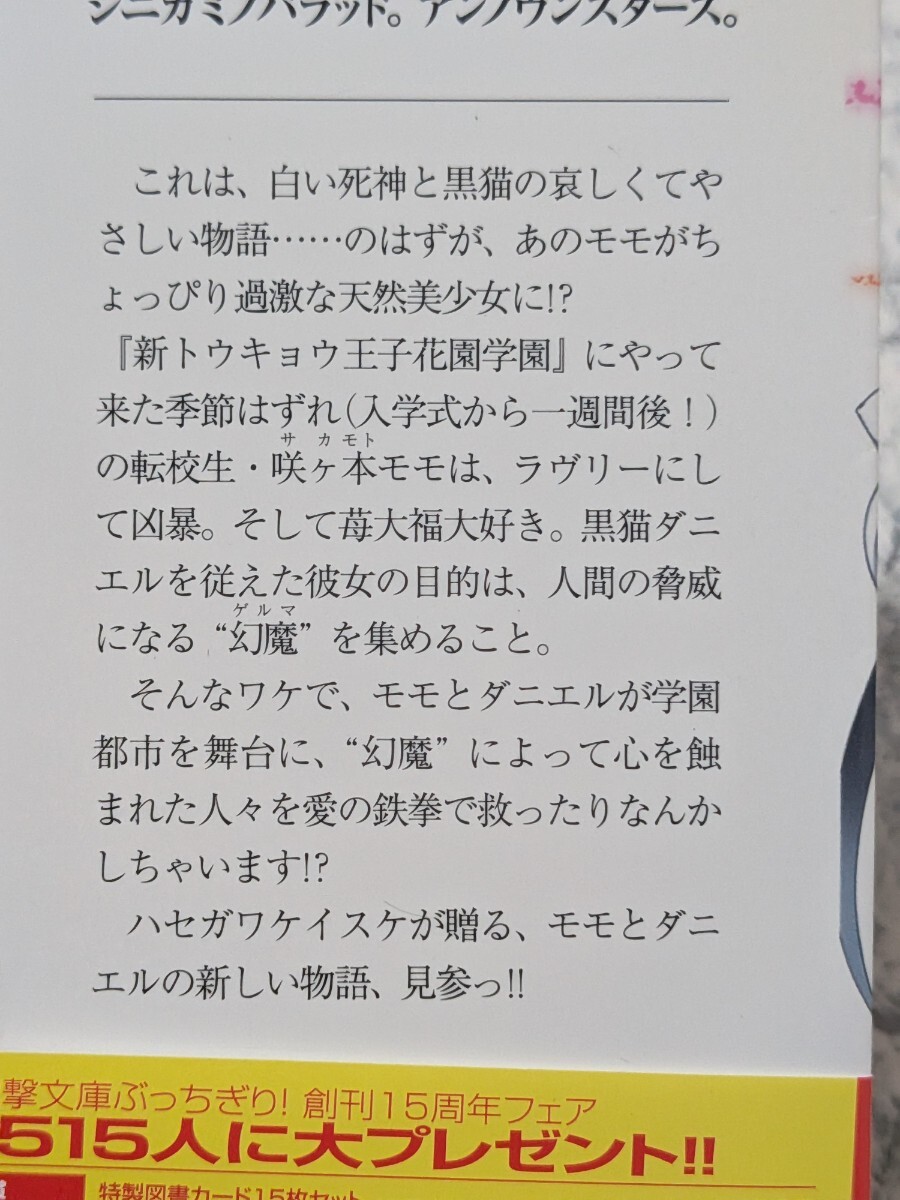 シニガミノバラッド。アンノウンスターズ。
これは、白い死神と黒猫の哀しくてや
さしい物語……のはずが、あのモモがち
ょっぴり過激な天然美少女に!?
『新トウキョウ王子花園学園』にやって
来た季節はずれ(入学式から一週間後！)
サカモト
の転校生・咲ヶ本モモは、ラヴリーにし
て凶暴。そして苺大福大好き。黒猫ダニ
エルを従えた彼女の目的は、人間の脅威
ゲルマ
になる“幻魔”を集めること。
そんなワケで、モモとダニエルが学園
都市を舞台に、“幻魔”によって心を蝕
まれた人々を愛の鉄拳で救ったりなんか
しちゃいます!?
ハセガワケイスケが贈る、モモとダニ
エルの新しい物語、見参っ!!
撃文庫ぶっちぎり! 創刊15周年フェア
515人に大プレゼント!!
特製図書カード15枚セット